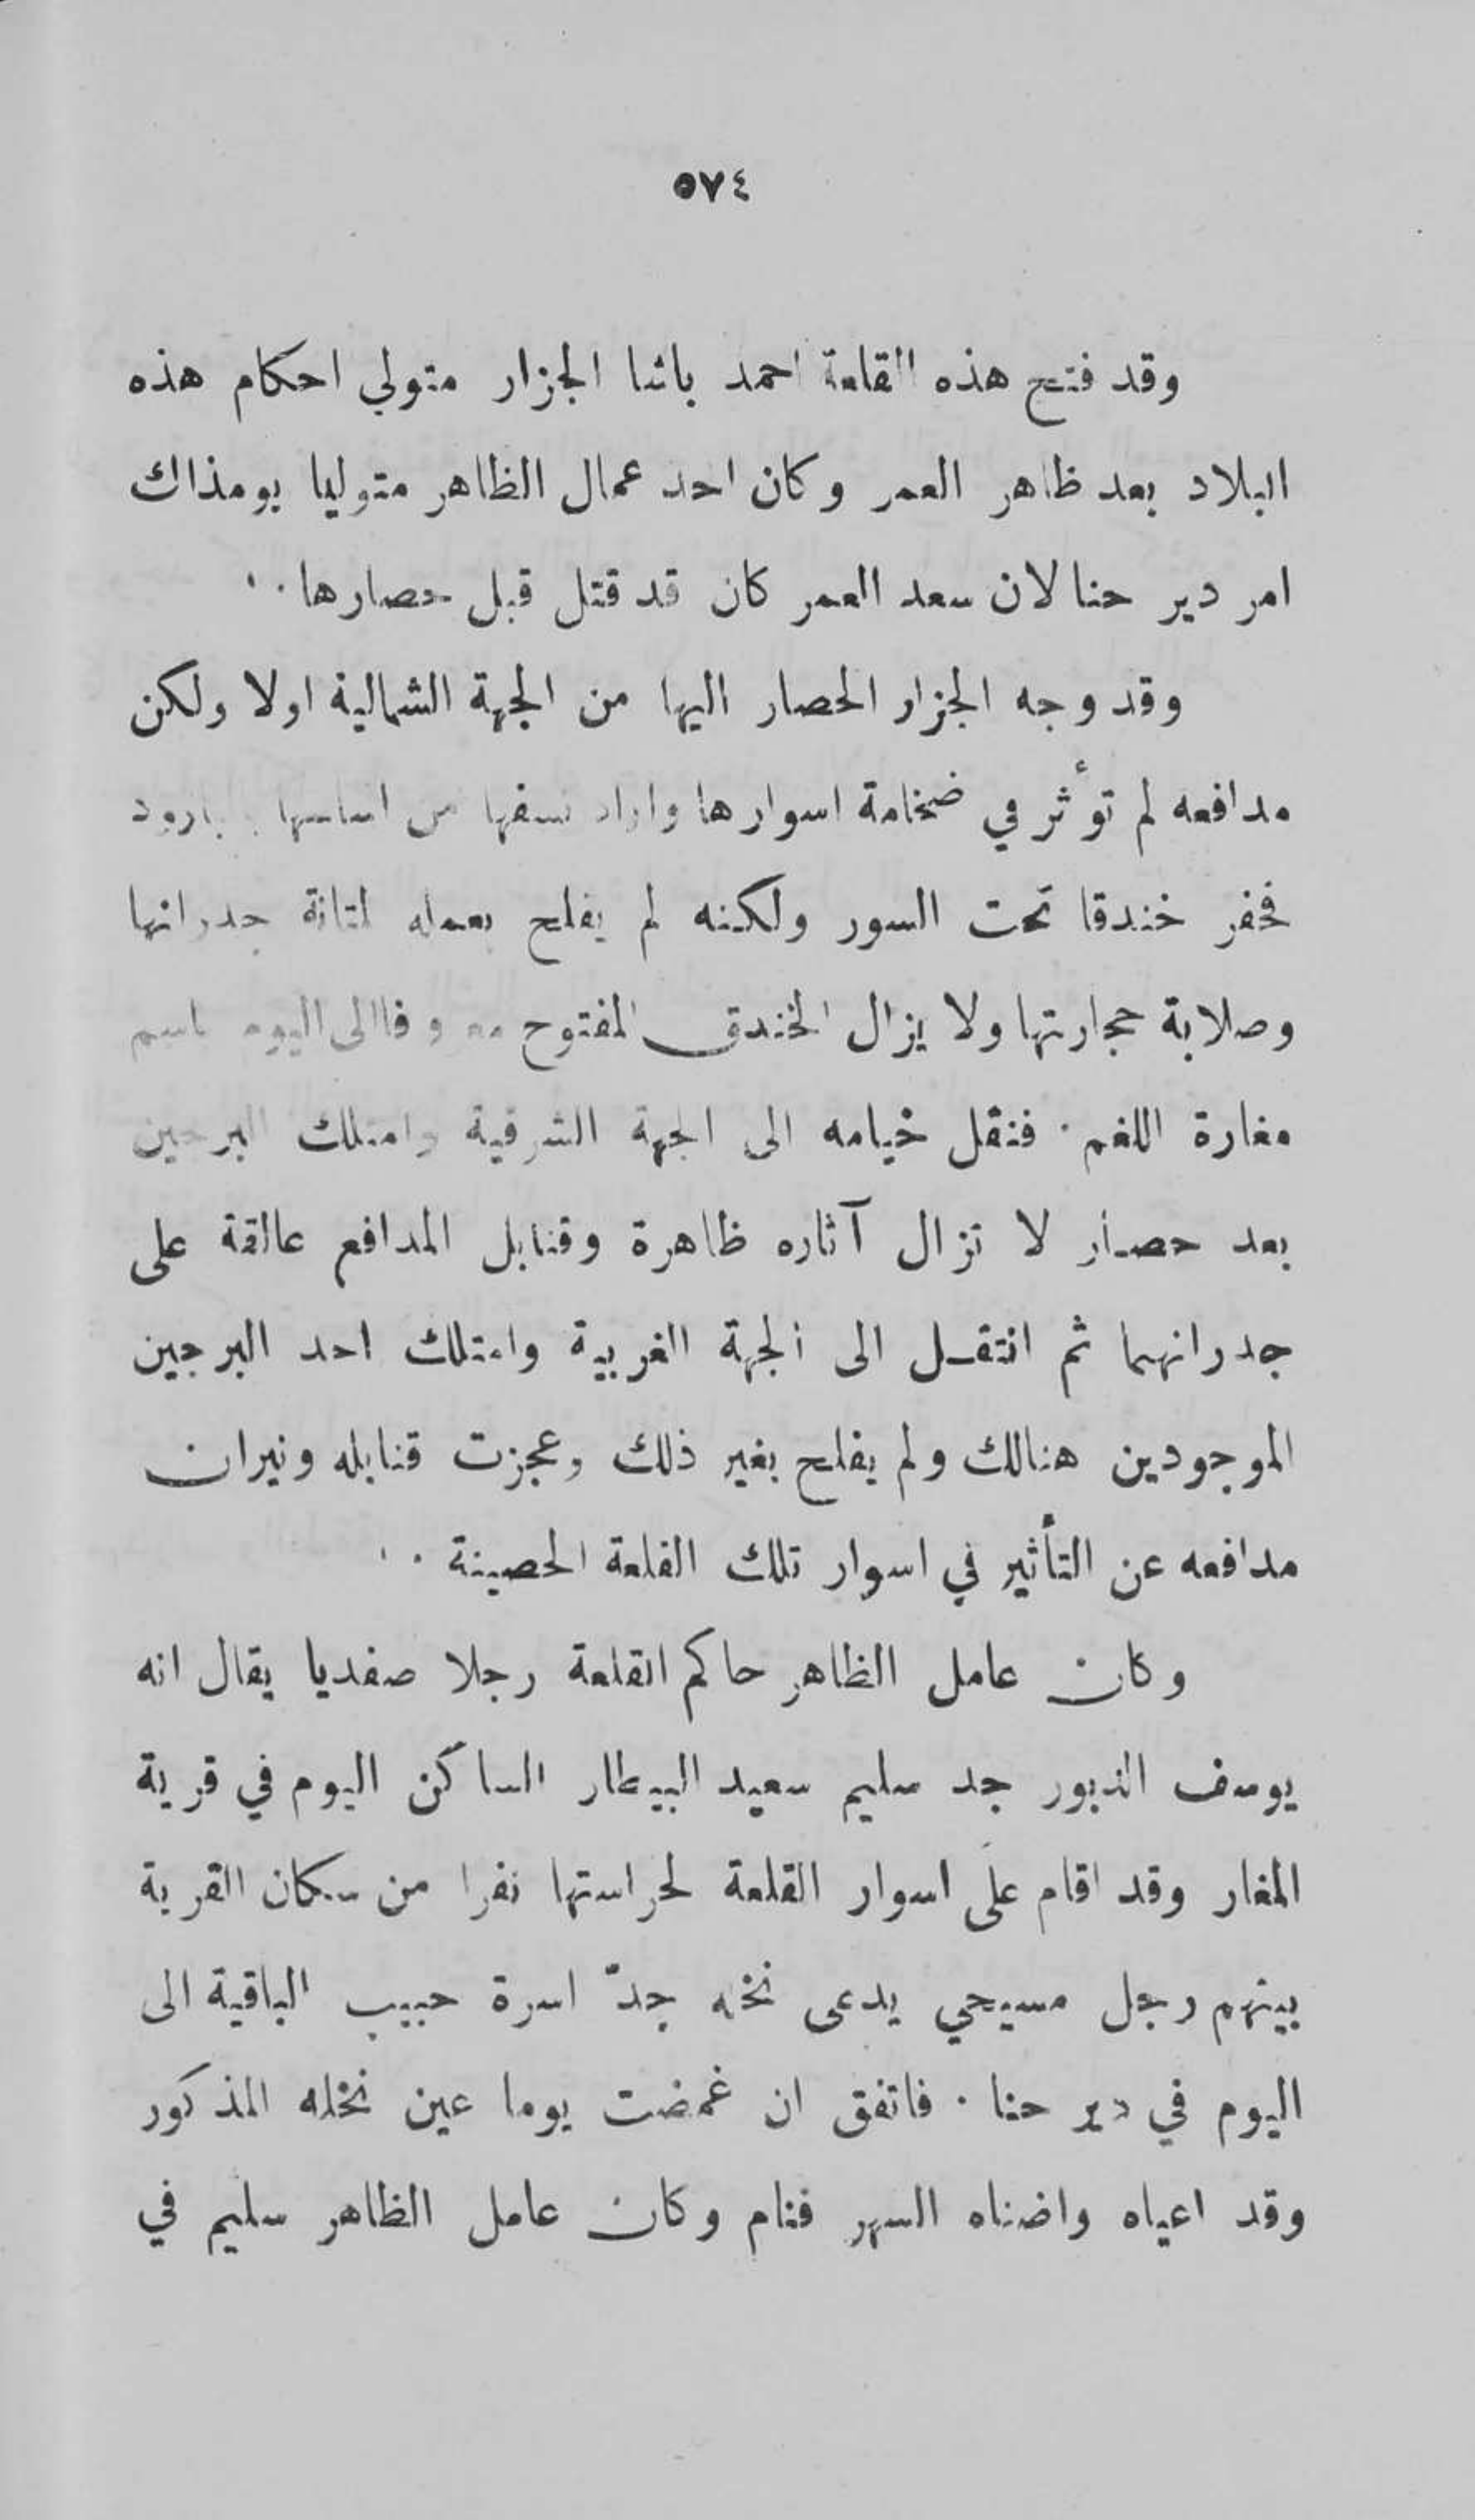 ٥٧٤
وقد فتح هذه القلعة احمد باشا الجزار متولي احكام هذه
البلاد بعد ظاهر العمر وكان احد عمال الظاهر متوليا يومذاك
امر دير حنا لان سعد العمر كان قد قتل قبل حصارها .
وقد وجه الجزار الحصار اليها من الجهة الشمالية اولا ولكن
مدافعه لم تؤثر في ضخامة اسوارها واراد نسفها من اساسها بارود
فحفر خندقا تحت السور ولكنه لم يفلح بعمله لمتانة جدرانها
وصلابة حجارتها ولا يزال الخندق المفتوح معروفا الى اليوم باسم
مغارة اللغم . فنقل خيامه الى الجهة الشرقية وامتلك البرجين
بعد حصار لا تزال آثاره ظاهرة وقنابل المدافع عالقة على
جدرانهما ثم انتقل الى الجهة الغربية وامتلك احد البرجين
الموجودين هنالك ولم يفلح بغير ذلك وعجزت قنابله ونيران
مدافعه عن التأثير في اسوار تلك القلعة الحصينة .
وكان عامل الظاهر حاكم القلعة رجلا صفديا يقال انه
يوسف الدبور جد سليم سعيد البيطار الساكن اليوم في قرية
المغار وقد اقام على اسوار القلعة لحراستها نفرا من سكان القرية
بينهم رجل مسيحي يدعى نخله جدّ اسرة حبيب الباقية الى
اليوم في دير حنا . فاتفق ان غمضت يوما عين نخله المذكور
وقد اعياه واضناه السهر فنام وكان عامل الظاهر سليم في